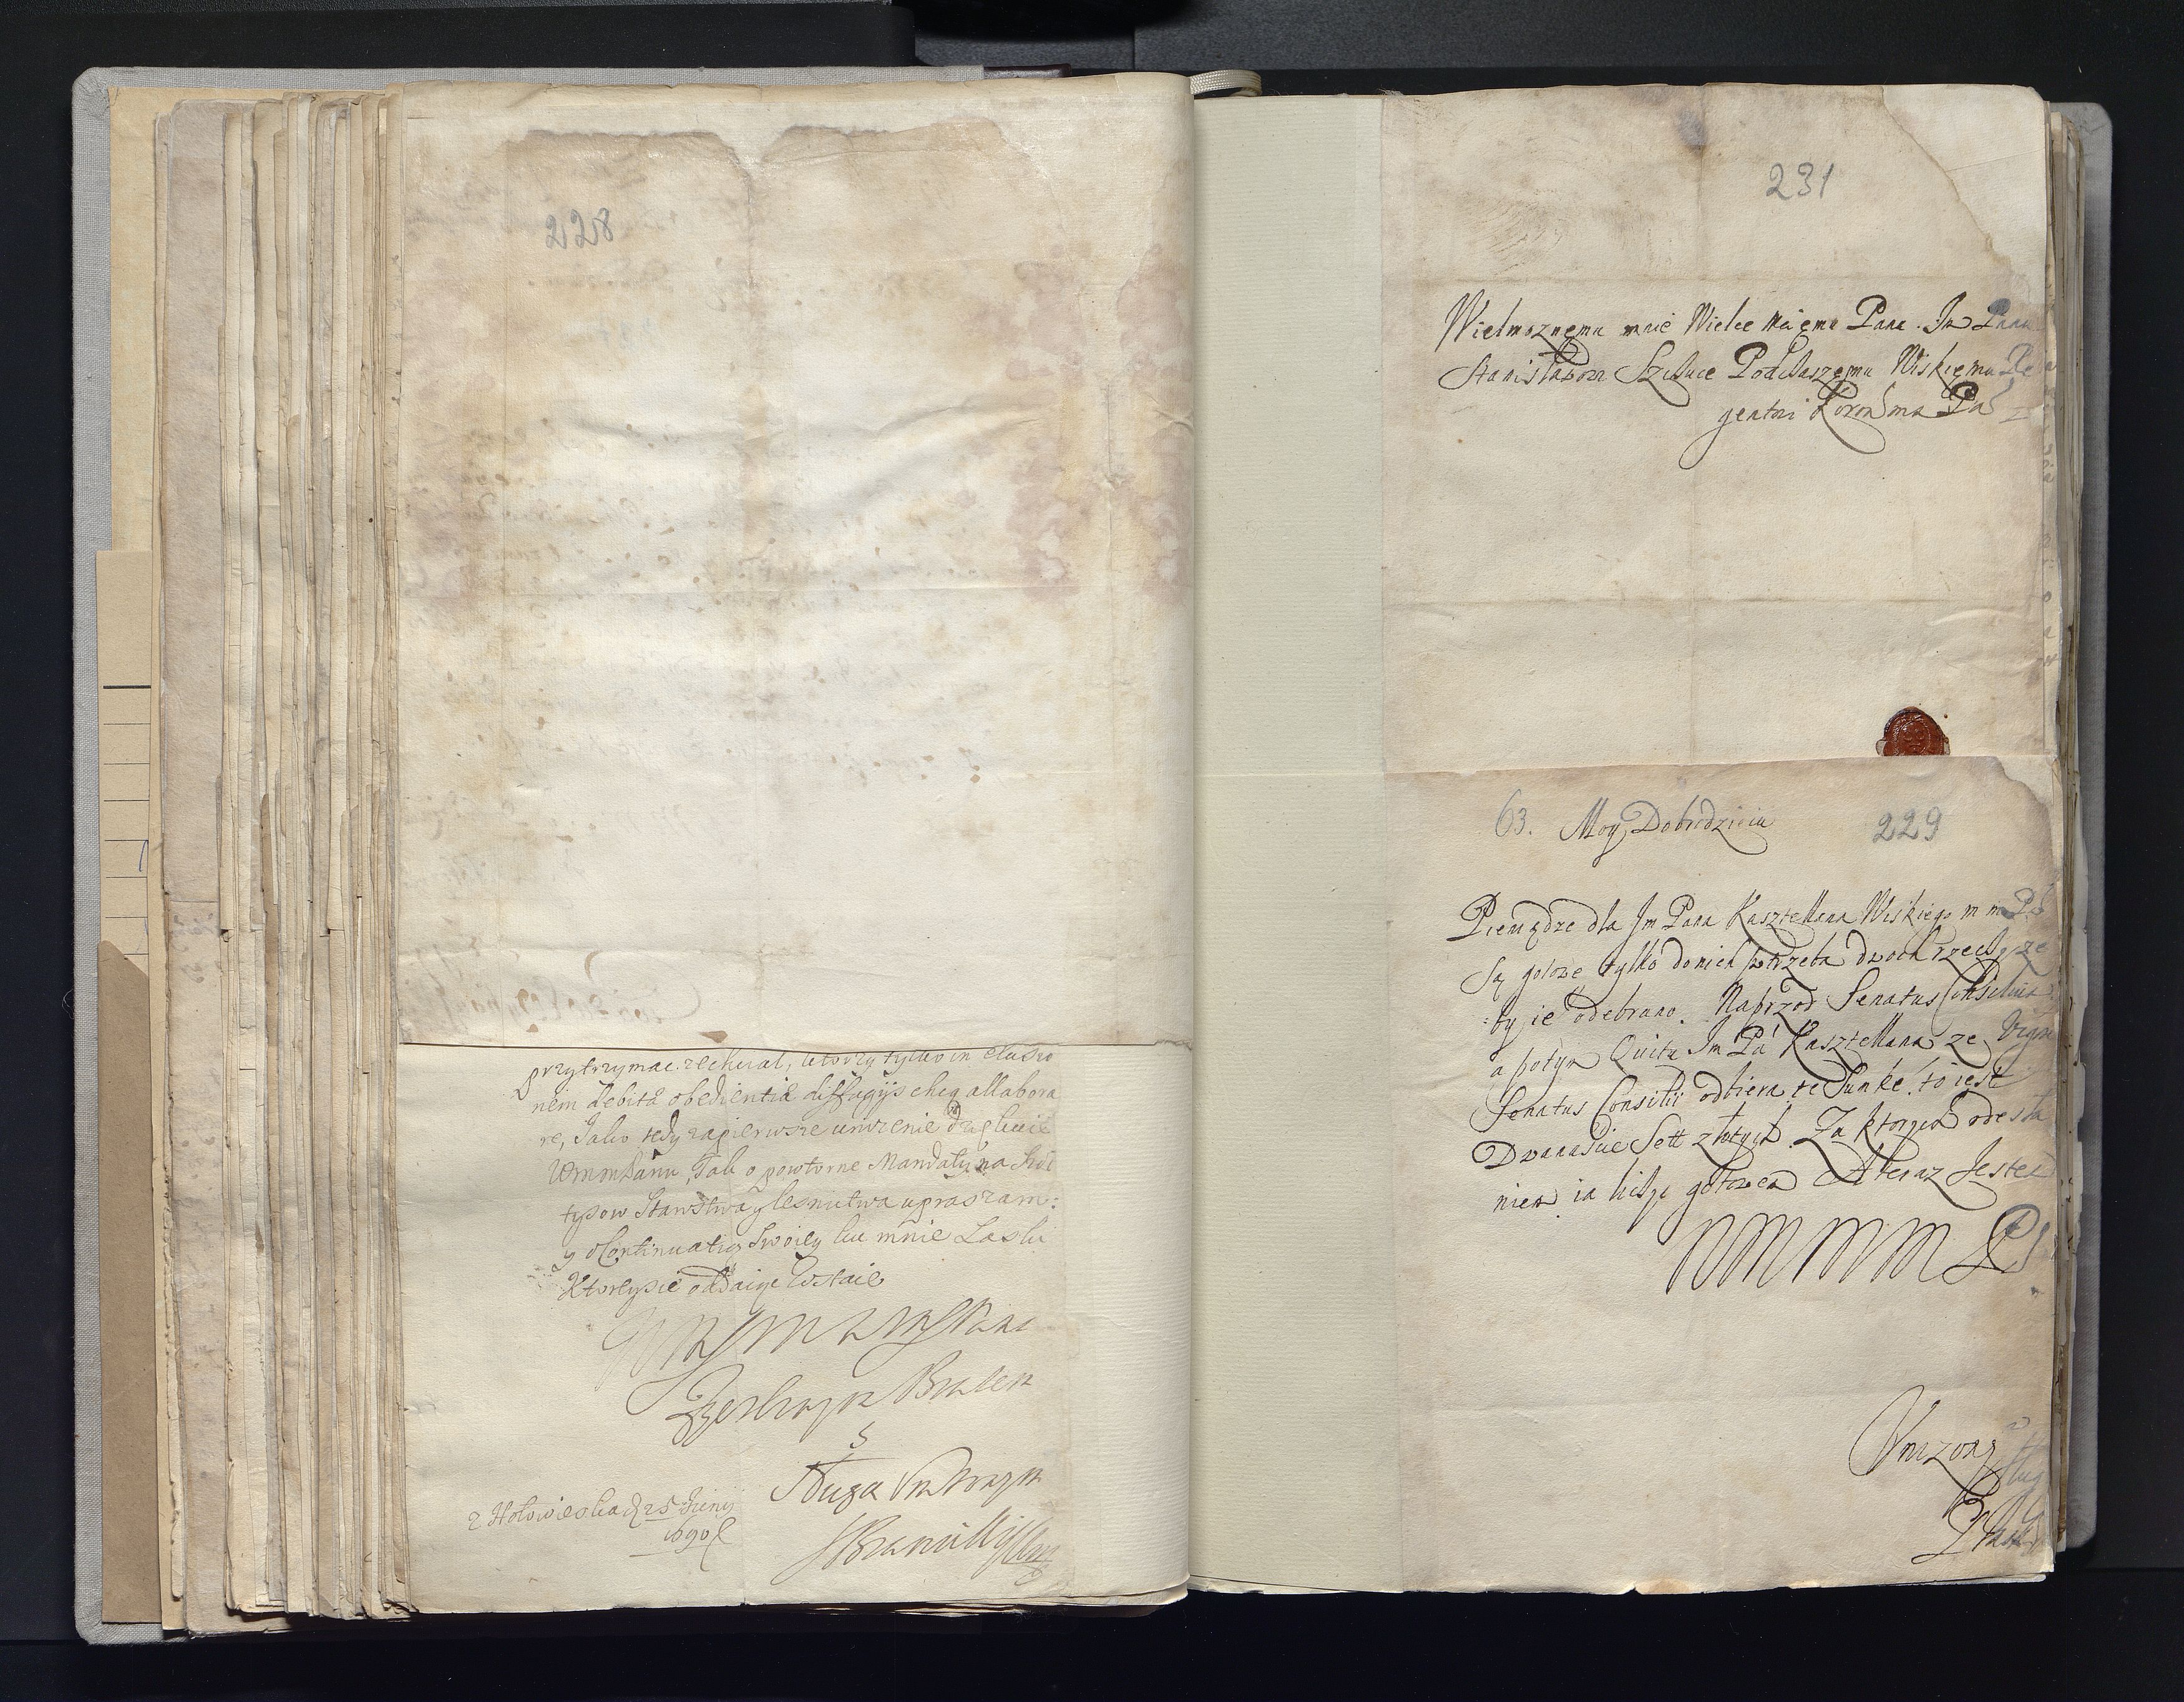 228
przytrzymac zechciał, ktorzy tylko in elusio
nem debita obedientia diffugijs chcą allabora
re, Jako tedy zapierwsze
WmmPanu, Tak o powtorne Mandaty na
Starostwa y lesnictwa upraszam:
y oContinuatią Swoiey ku mnie Laski
Ktoreysie oddaię Zostaie
Bratem
Sługa
z Hołowieskach 25 Junij
1690
231
Wielmoznemu mnie Wielce Memu Panu Im Panu
Stanisławowi Szczuce Podczaszemu Wiskiemu Re
gentowi Koron ma Pa
63. Moy Dobrodzieiu
229
Pieniądze dla Im Pana Kasztellana Wiskiego m m P
Są gotowe tylko donich potrzeba dwoch rzeczy, ze
by ie odebrano. Naprzod Senatus Consilium
a potym Quitu Im Pa Kasztellana ze Vigore
Senatus Consilii odbiera te Summe, to iest
Dwanascie Sett złotych. Za ktorych odesła
niem ia liczyc gotowem A teraz Jestem
WM M M M P
Unizony
Sług